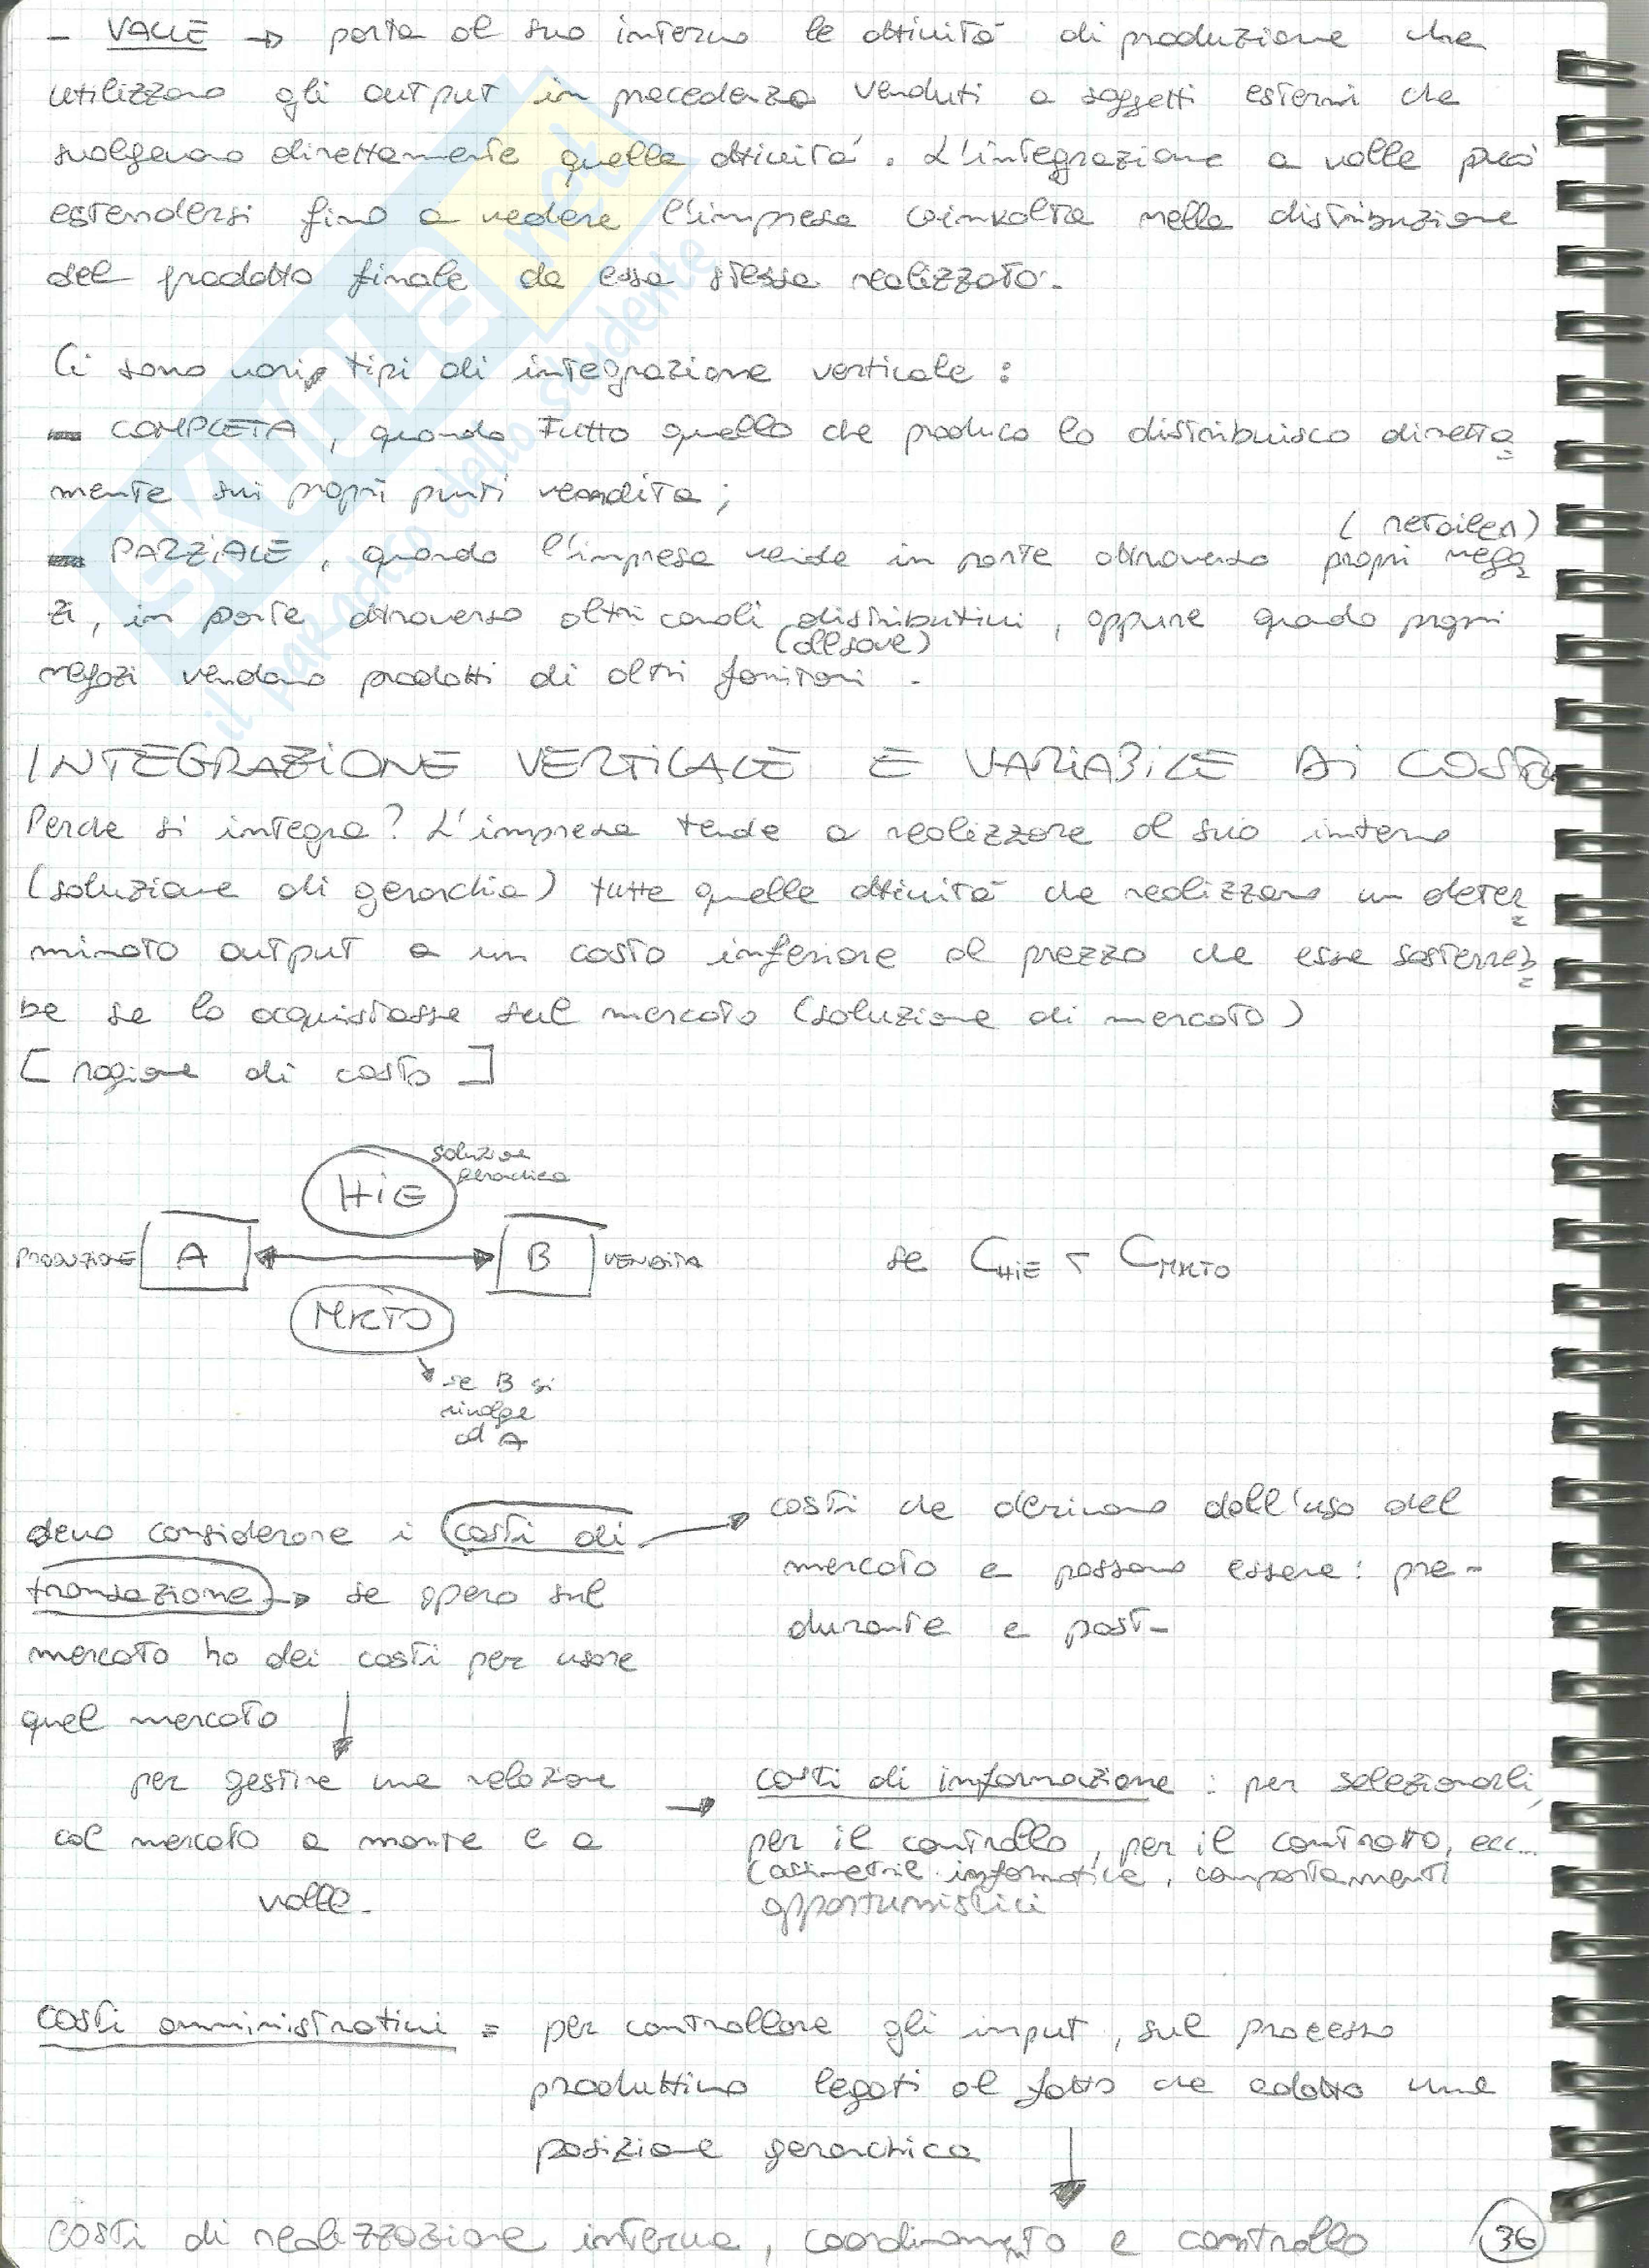 - VALLE → porta al suo interno le attività di produzione che
utilizzano gli output in precedenza venduti a soggetti esterni che
svolgevano direttamente quelle attività. L'integrazione a valle può
estendersi fino a vedere l'impresa coinvolta nella distribuzione
del prodotto finale da essa stessa realizzato.
Ci sono vari tipi di integrazione verticale :
- COMPLETA , quando tutto quello che produco lo distribuisco diretta=
mente sui propri punti vendita ;
(retailer)
- PARZIALE , quando l'impresa vende in parte attraverso propri nego=
zi, in parte attraverso altri canali distributivi , oppure quando propri
negozi vendono prodotti di altri fornitori .
INTEGRAZIONE VERTICALE E VARIABILE DI COSTO
Perche si integra? L'impresa tende a realizzare al suo interno
(soluzione di gerarchia) tutte quelle attività che realizzano un deter=
minato output a un costo inferiore al prezzo che esse sosterreb=
be se lo acquistasse sul mercato (soluzione di mercato)
[ ragione di costo ]
soluzione
gerarchica
HiE
PRODUZIONE A B VENDITA
se CHiE < CMKTO
MKTO
se B si
rivolge
ad A
devo considerare i costi di
transazione → se opero sul
mercato ho dei costi per usare
quel mercato
costi che derivano dall'uso del
mercato e possono essere: pre-
durante e post-
per gestire una relazione
col mercato a monte e a
valle.
→ costi di informazione : per selezionarli,
per il controllo, per il contratto, ecc...
(asimmetrie informative, comportamenti
opportunistici
costi amministrativi = per controllare gli input , sul processo
produttivo legati al fatto che adotto una
posizione gerarchica
costi di realizzazione interna, coordinamento e controllo
36
SKUOLA.net
il paradiso dello studente